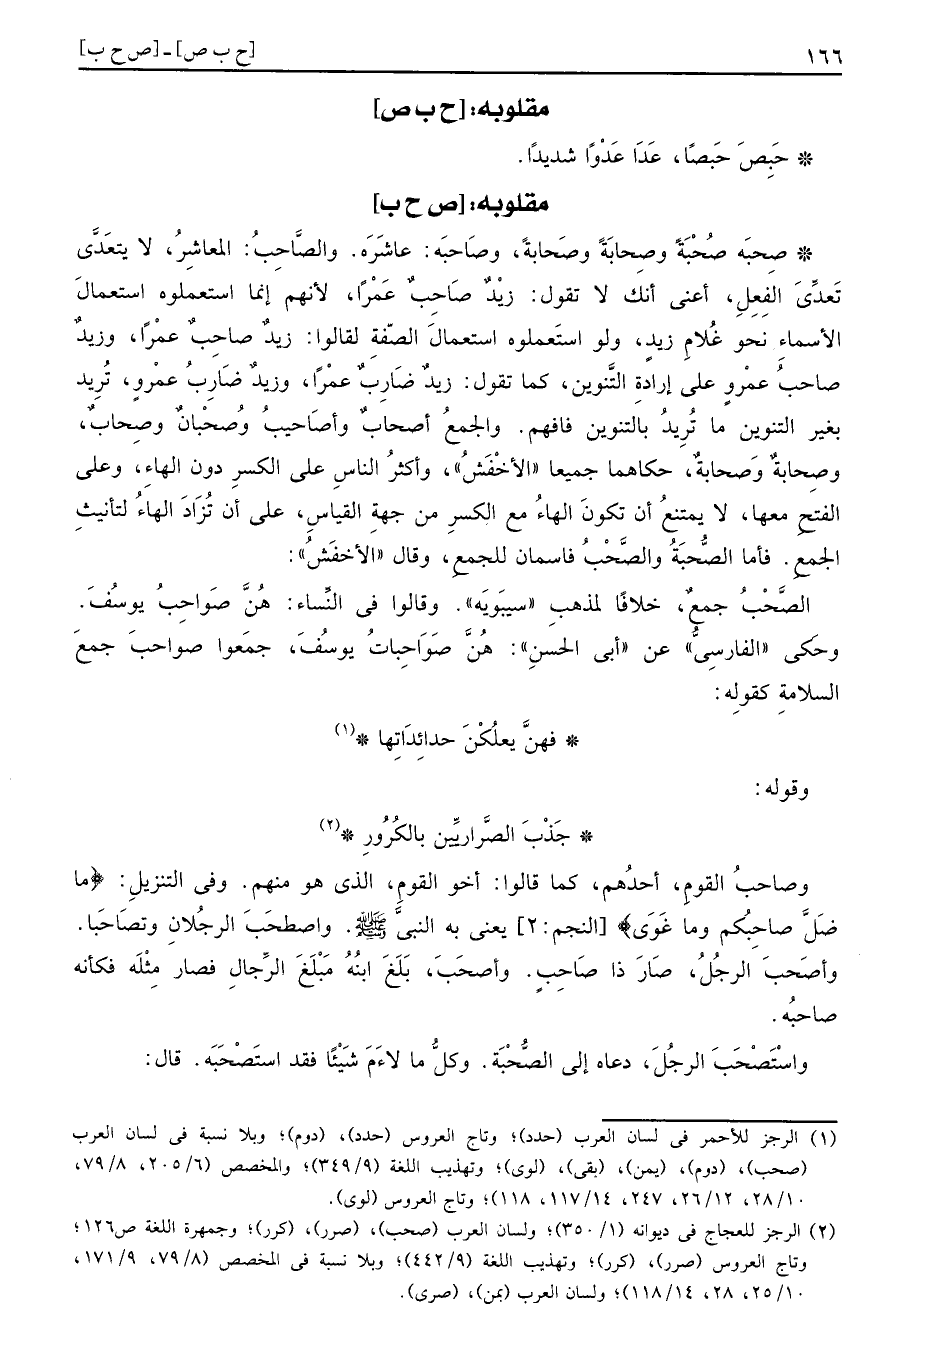 ١٦٦ [ح ب ص] ـ [ص ح ب]
مقلوبه: [ح ب ص]
* حَبِصَ حَبَصًا، عَدَا عَدْوًا شديدًا.
مقلوبه: [ص ح ب]
* صحِبَه صُحْبَةً وصِحابةً وصَحابة، وصَاحبَه: عاشَرَه. والصَّاحبُ: المعاشرُ، لا يتعَدَّى
تَعدِّىَ الفِعلِ، أعنى أنك لا تقول: زيْدٌ صَاحِبٌ عَمْرًا، لأنهم إنما استعملوه استعمالَ
الأسماءِ نحو غُلامِ زيدٍ، ولو استَعملوه استعمالَ الصّفة لقالوا: زيدٌ صاحبٌ عمْرًا، وزيدٌ
صاحبُ عمْرٍو على إرادةِ التَّنوين، كما تقول: زيدٌ ضَارِبٌ عمْرًا، وزيدٌ ضَارِبُ عمْرٍو، تُرِيد
بغير التنوين ما تُرِيدُ بالتنوين فافهم. والجمعُ أصحابٌ وأصَاحيبُ وصُحْبانٌ وصِحابٌ،
وصِحابةٌ وَصَحابةٌ، حكاهما جميعا «الأخْفَشُ»، وأكثرُ الناسِ على الكسرِ دون الهاء، وعلى
الفتحِ معها، لا يمتنعُ أن تكونَ الهاءُ مع الكسرِ من جهةِ القياسِ، على أن تُزَادَ الهاءُ لتأنيثِ
الجمع. فأما الصُّحبَةُ والصَّحْبُ فاسمان للجمعِ، وقال «الأخفَشُ»:
الصَّحْبُ جمعٌ، خلافًا لمذهبِ «سيبَوَيه». وقالوا فى النِّساء: هُنَّ صَواحبُ يوسُفَ.
وحكَى «الفارسِىُّ» عن «أبى الحسنِ»: هُنَّ صَوَاحِباتُ يوسُفَ، جمَعوا صواحبَ جمعَ
السلامةِ كقولِه:
* فهنَّ يعلُكْنَ حدائِدَاتِها *(١)
وقوله:
* جَذْبَ الصَّرارِيِّين بالكُرُورِ *(٢)
وصاحبُ القومِ، أحدُهم، كما قالوا: أخو القومِ، الذى هو منهم. وفى التنزيل: ﴿ما
ضَلَّ صاحبُكم وما غَوَى﴾ [النجم: ٢] يعنى به النبىَّ ﷺ. واصطحَبَ الرجُلانِ وتصَاحَبا.
وأصَحبَ الرجُلُ، صَارَ ذا صَاحِبٍ. وأصحَبَ، بَلَغَ ابنُهُ مَبْلَغَ الرِّجالِ فصار مِثْلَه فكأنه
صاحبُه.
واسْتَصْحَبَ الرجُلَ، دعاه إلى الصُّحْبَة. وكلُّ ما لاءَمَ شَيْئًا فقد استَصْحَبَه. قال:
(١) الرجز للأحمر فى لسان العرب (حدد)؛ وتاج العروس (حدد)، (دوم)؛ وبلا نسبة فى لسان العرب
(صحب)، (دوم)، (يمن)، (بقى)، (لوى)؛ وتهذيب اللغة (٣٤٩/٩)؛ والمخصص (٢٠٥/٦، ٧٩/٨،
٢٨/١٠، ٢٦/١٢، ٢٤٧، ١١٧/١٤، ١١٨)؛ وتاج العروس (لوى).
(٢) الرجز للعجاج فى ديوانه (٣٥٠/١)؛ ولسان العرب (صحب)، (صرر)، (كرر)؛ وجمهرة اللغة ص١٢٦؛
وتاج العروس (صرر)، (كرر)؛ وتهذيب اللغة (٤٤٢/٩)؛ وبلا نسبة فى المخصص (٧٩/٨، ١٧١/٩،
٢٥/١٠، ٢٨، ١١٨/١٤)؛ ولسان العرب (يمن)، (صرى).